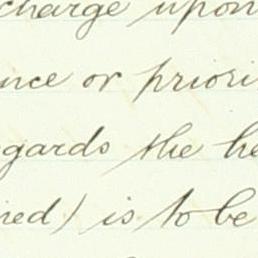 charge upon
nce or priori
gards the he
ned) is to be